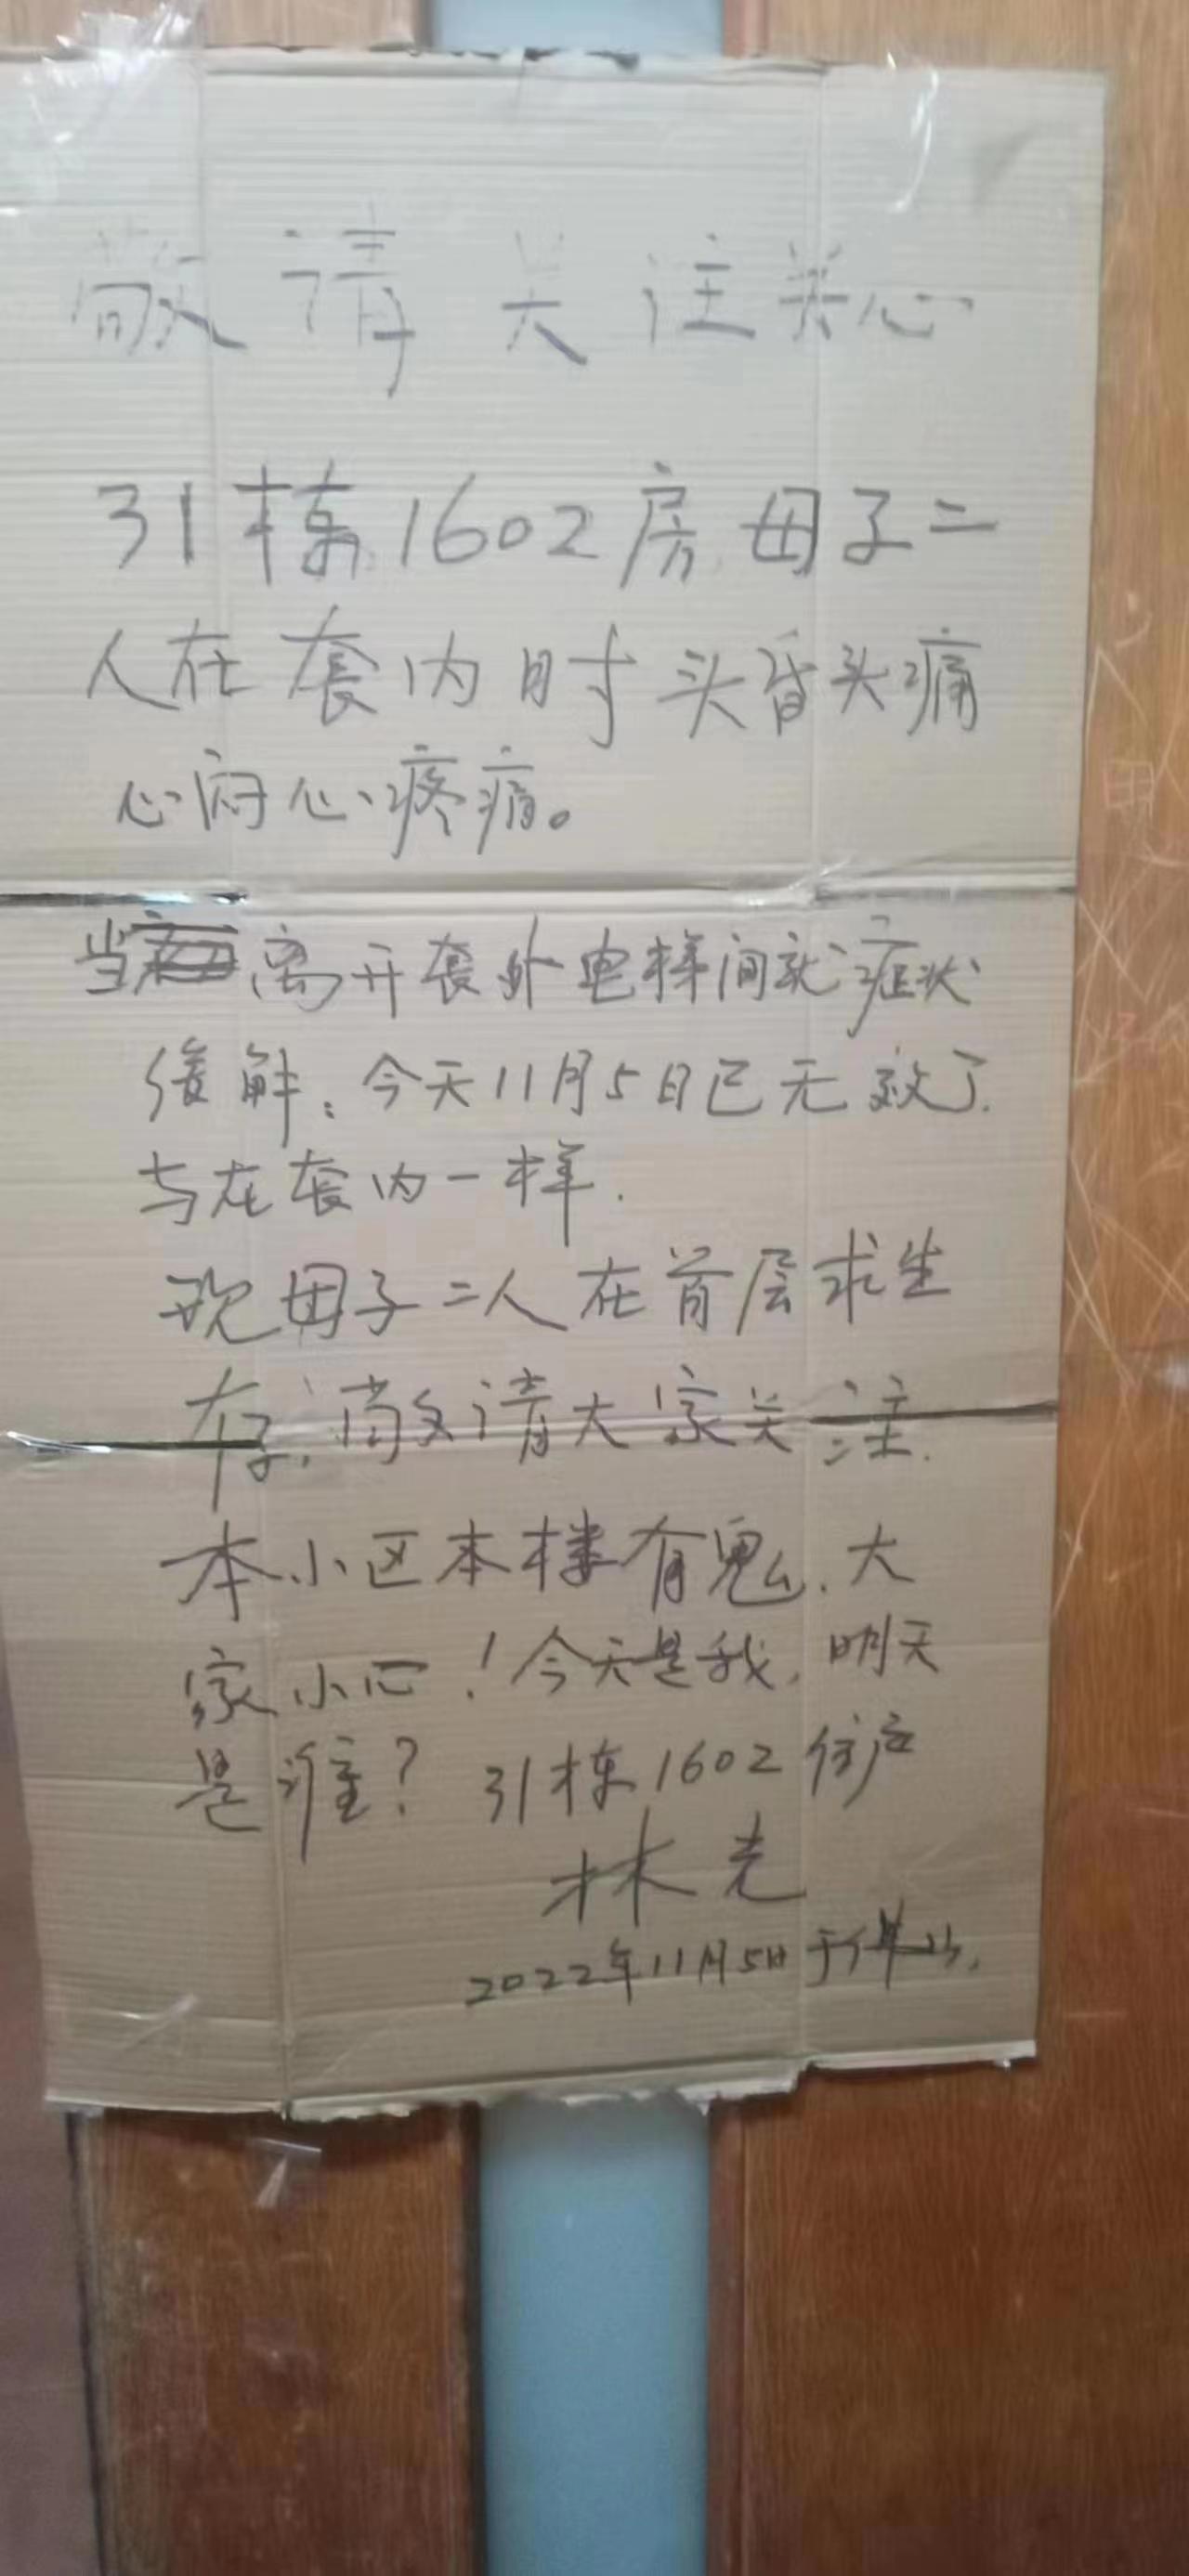 敬请关注关心
31栋1602房母子二
人在套内时头昏头痛
心闷心疼痛。
当离开套外电梯间就症状
缓解；今天11月5日已无效了.
与在套内一样.
现母子二人在首层求生
存，敬请大家关注.
本小区本楼有鬼，大
家小心！今天是我，明天
是谁？31栋1602住户
林光
2022年11月5日于佛山.